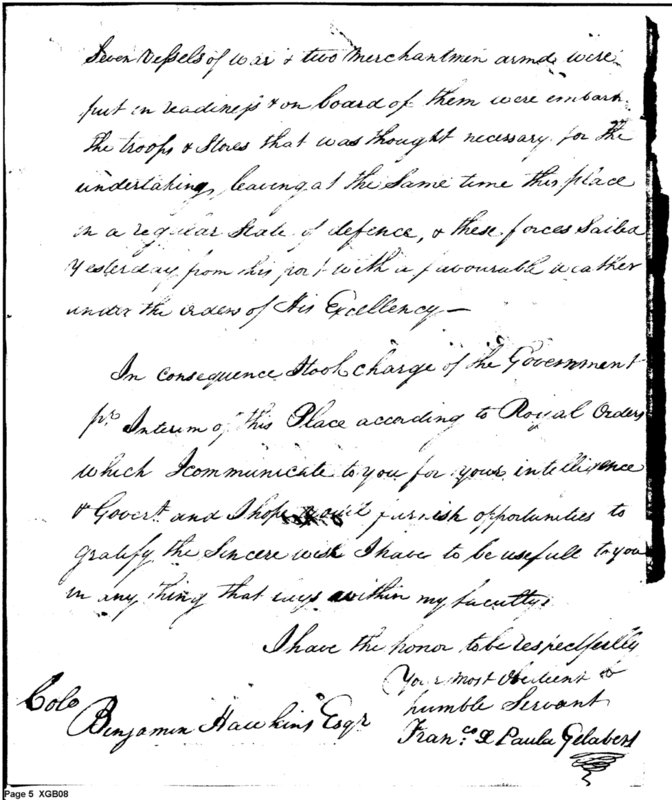 Seven Vessels of war & two Merchantmen armd were
put in readiness & on board of them were embark
the troops & Stores that was thought necessary for the
undertaking, leaving at the Same time this place
in a regular State of defence, & these forces Sailed
Yesterday from his port with a favourable weather
under the orders of His Excellency —
In consequence I took charge of the Government
pro Interim of this Place according to Royal Orders
which I communicate to you for your intelligence
& Govert. and I hope furnish opportunities to
gratify the Sincere wish I have to be usefull to you
in any thing that lays within my faculty.
I have the honor to be respectfully
Your most Obedient &
humble Servant
Francs. D Paula Gelabert
Colo
Benjamin Hawkins Esqr
Page 5 XGB08